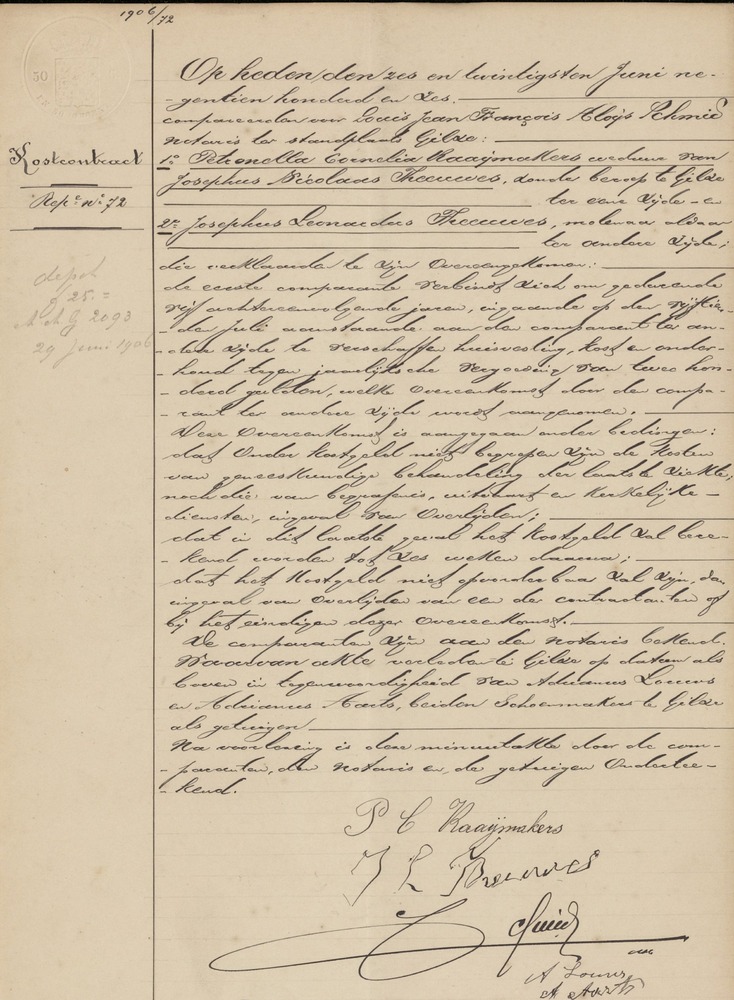 1906/72
Kostcontract
Rep.e no 72
depot
f 25.=
29 Juni 1906
Op heden den zes en twintigsten Juni ne-
gentien honderd en zes.
compareerden voor Louis Jean François Aloijs Schmid
notaris ter standplaats Gilze:
1o Petronella Cornelia Raaijmakers weduwe van
Josephus Nicolaas Theeuwes, zonder beroep te Gilze
ter eene zijde - en
2o Josephus Leonardus Theeuwes, molenaar aldaar
ter andere zijde;
die verklaarden te zijn overeengekomen:
de eerste comparante verbindt zich om gedurende
vijf achtereenvolgende jaren, ingaande op den vijftien-
den Juli aanstaande aan den comparant ter an-
dere zijde te verschaffen huisvesting, kost en onder-
houd tegen jaarlijksche vergoeding van twee hon-
derd gulden, welke overeenkomst door den compa-
rant ter andere zijde wordt aangenomen.
Deze overeenkomst is aangegaan onder bedingen:
dat onder kostgeld niet begrepen zijn de kosten
van geneeskundige behandeling der laatste ziekte,
noch die van begrafenis, uitvaart en kerkelijke
diensten, ingeval van overlijden;
dat in dit laatste geval het kostgeld zal bere-
kend worden tot zes weken daarna;
dat het kostgeld niet opvorderbaar zal zijn, dan
ingeval van overlijden van een der contractanten of
bij het eindigen dezer overeenkomst.
De comparanten zijn aan den notaris bekend.
Waarvan akte verleden te Gilze op datum als
boven in tegenwoordigheid van Adrianus Louws
en Adrianus Aarts, beiden schoenmakers te Gilze
als getuigen
Na voorlezing is deze minuutakte door de com-
paranten, den notaris en de getuigen onderteе-
kend.
P C Raaijmakers
J L Theeuwes
Schmid
A Louws
A Aarts